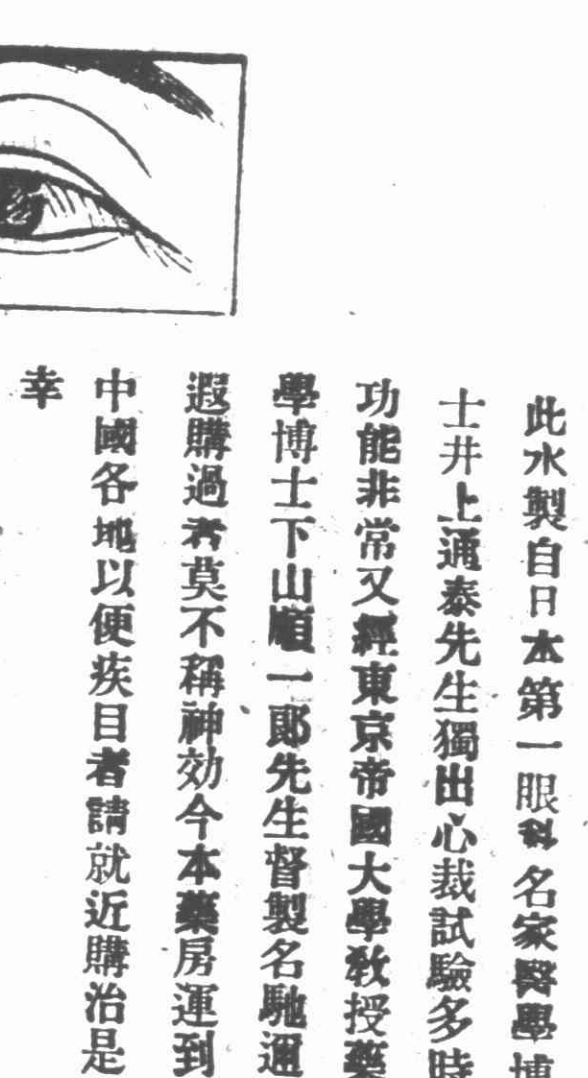 此水製自日本第一眼科名家醫學博
士井上通泰先生獨出心裁試驗多時
功能非常又經東京帝國大學敎授藥
學博士下山順一郞先生督製名馳邇
遐購過者莫不稱神効今本藥房運到
中國各地以便疾目者請就近購治是
幸